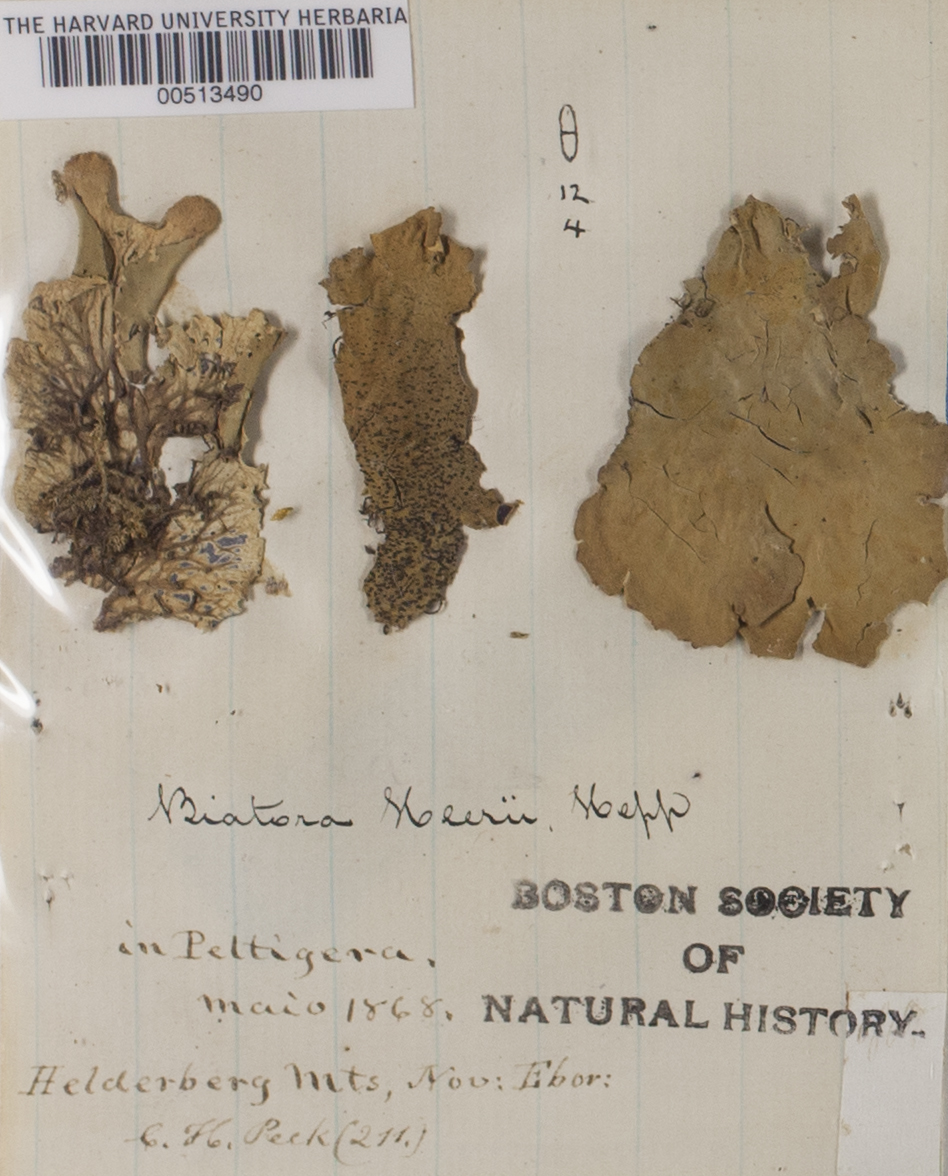 THE HARVARD UNIVERSITY HERBARIA
00513490
12
4
Biatora Heerii, Hepp
BOSTON SOCIETY
OF
NATURAL HISTORY.
in Peltigera.
Maio 1868.
Helderberg Mts, Nov: Ebor:
C. H. Peck (211.)